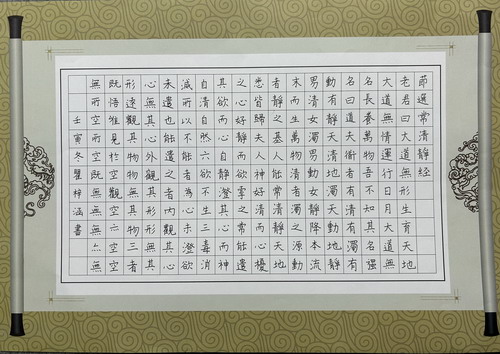 節選常清靜經
老君曰大道無形生育天地
大道無情運行日月大道無
名長養萬物吾不知其名強
名曰道夫道者有清有濁有
動有靜天清地濁天動地靜
男清女濁男動女靜降本流
末而生萬物清者濁之源動
者靜之基人能常清靜天地
悉皆歸夫人神好清而心擾
之心好靜而欲牽之常能遣
其欲而心自靜澄其心而神
自清自然六欲不生三毒消
滅所以不能者為心未澄欲
未遣也能遣之者內觀其心
心無其心外觀其形形無其
形遠觀其物物無其物三者
既悟惟見於空觀空亦空空
無所空所空既無無無亦無
壬寅冬龔梓涵書